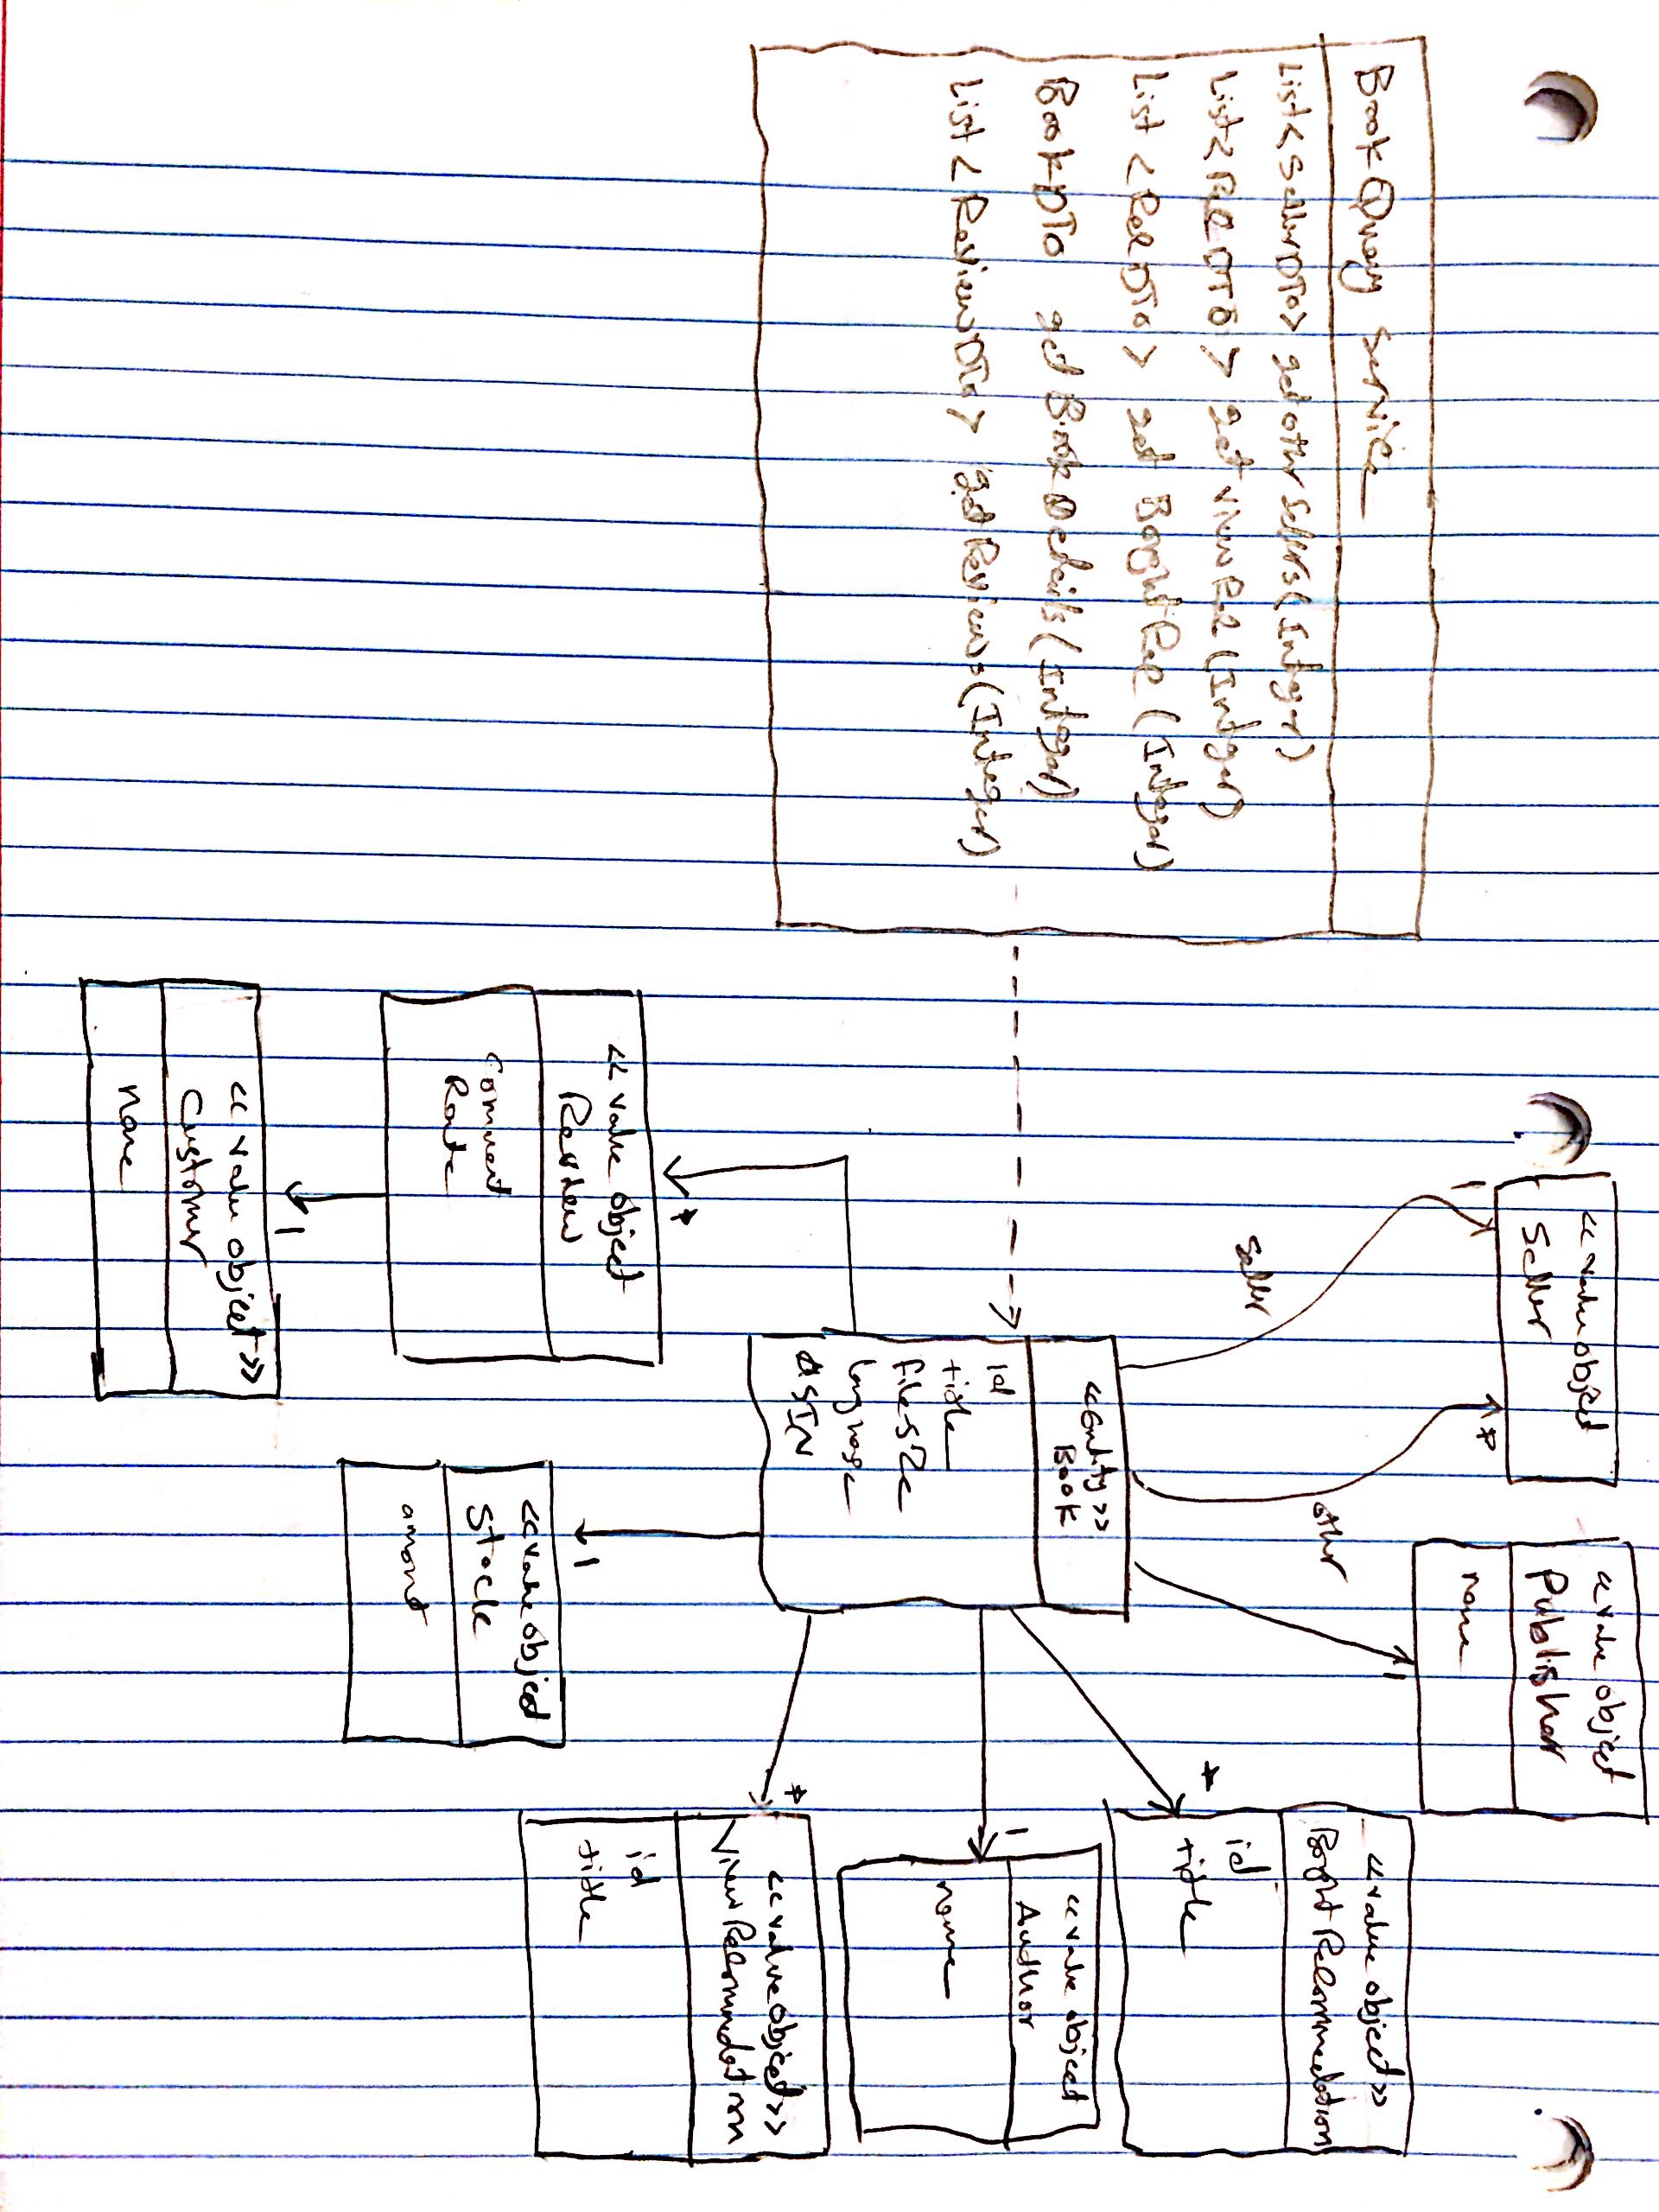 Book Query Service
List<SellerDTO> getotherSellers(Integer)
List<RecDTO> getviewRec(Integer)
List<RecDTO> getBoghtRec(Integer)
BookDTO getBookDetails(Integer)
List<ReviewDTO> getReviews(Integer)
<<value object
Seller
1
*
seller
other
<<value object
Publisher
name
1
<<value object>>
BoghtRecommedation
id
title
*
<<Entity>>
Book
id
title
filesize
language
ASIN
<<value object
Author
name
1
<<value object>>
ViewRecommedation
id
title
*
<<value object
Review
Comment
Rate
*
<<value object
Stock
amont
1
<<value object>>
Customer
name
1